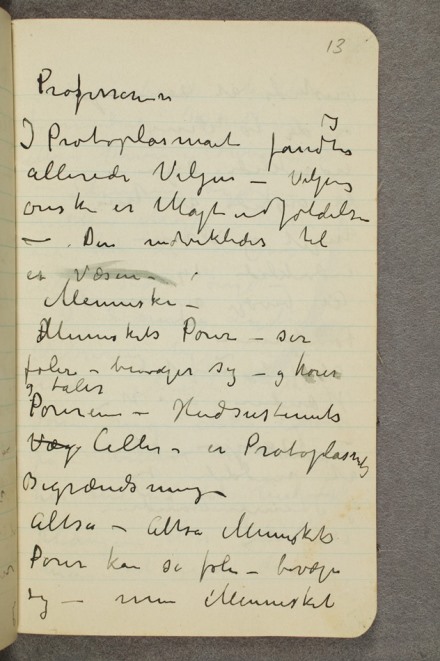 13
Professoren
I Protoplasmaet fandtes
allerede Viljen – Viljens
ønske er Magtudfoldelse
– Den udvikledes til
et Væsen –
Menneske –
Menneskets Porer – ser
føler – bevæger sig – og hører
og taler
Porerne – Hudsystemets
Væg Celler – er Protoplasmas
Begrændsning
Altsa – Altsa Menneskets
Porer kan se føle – bevæge
sig – men Mennesket